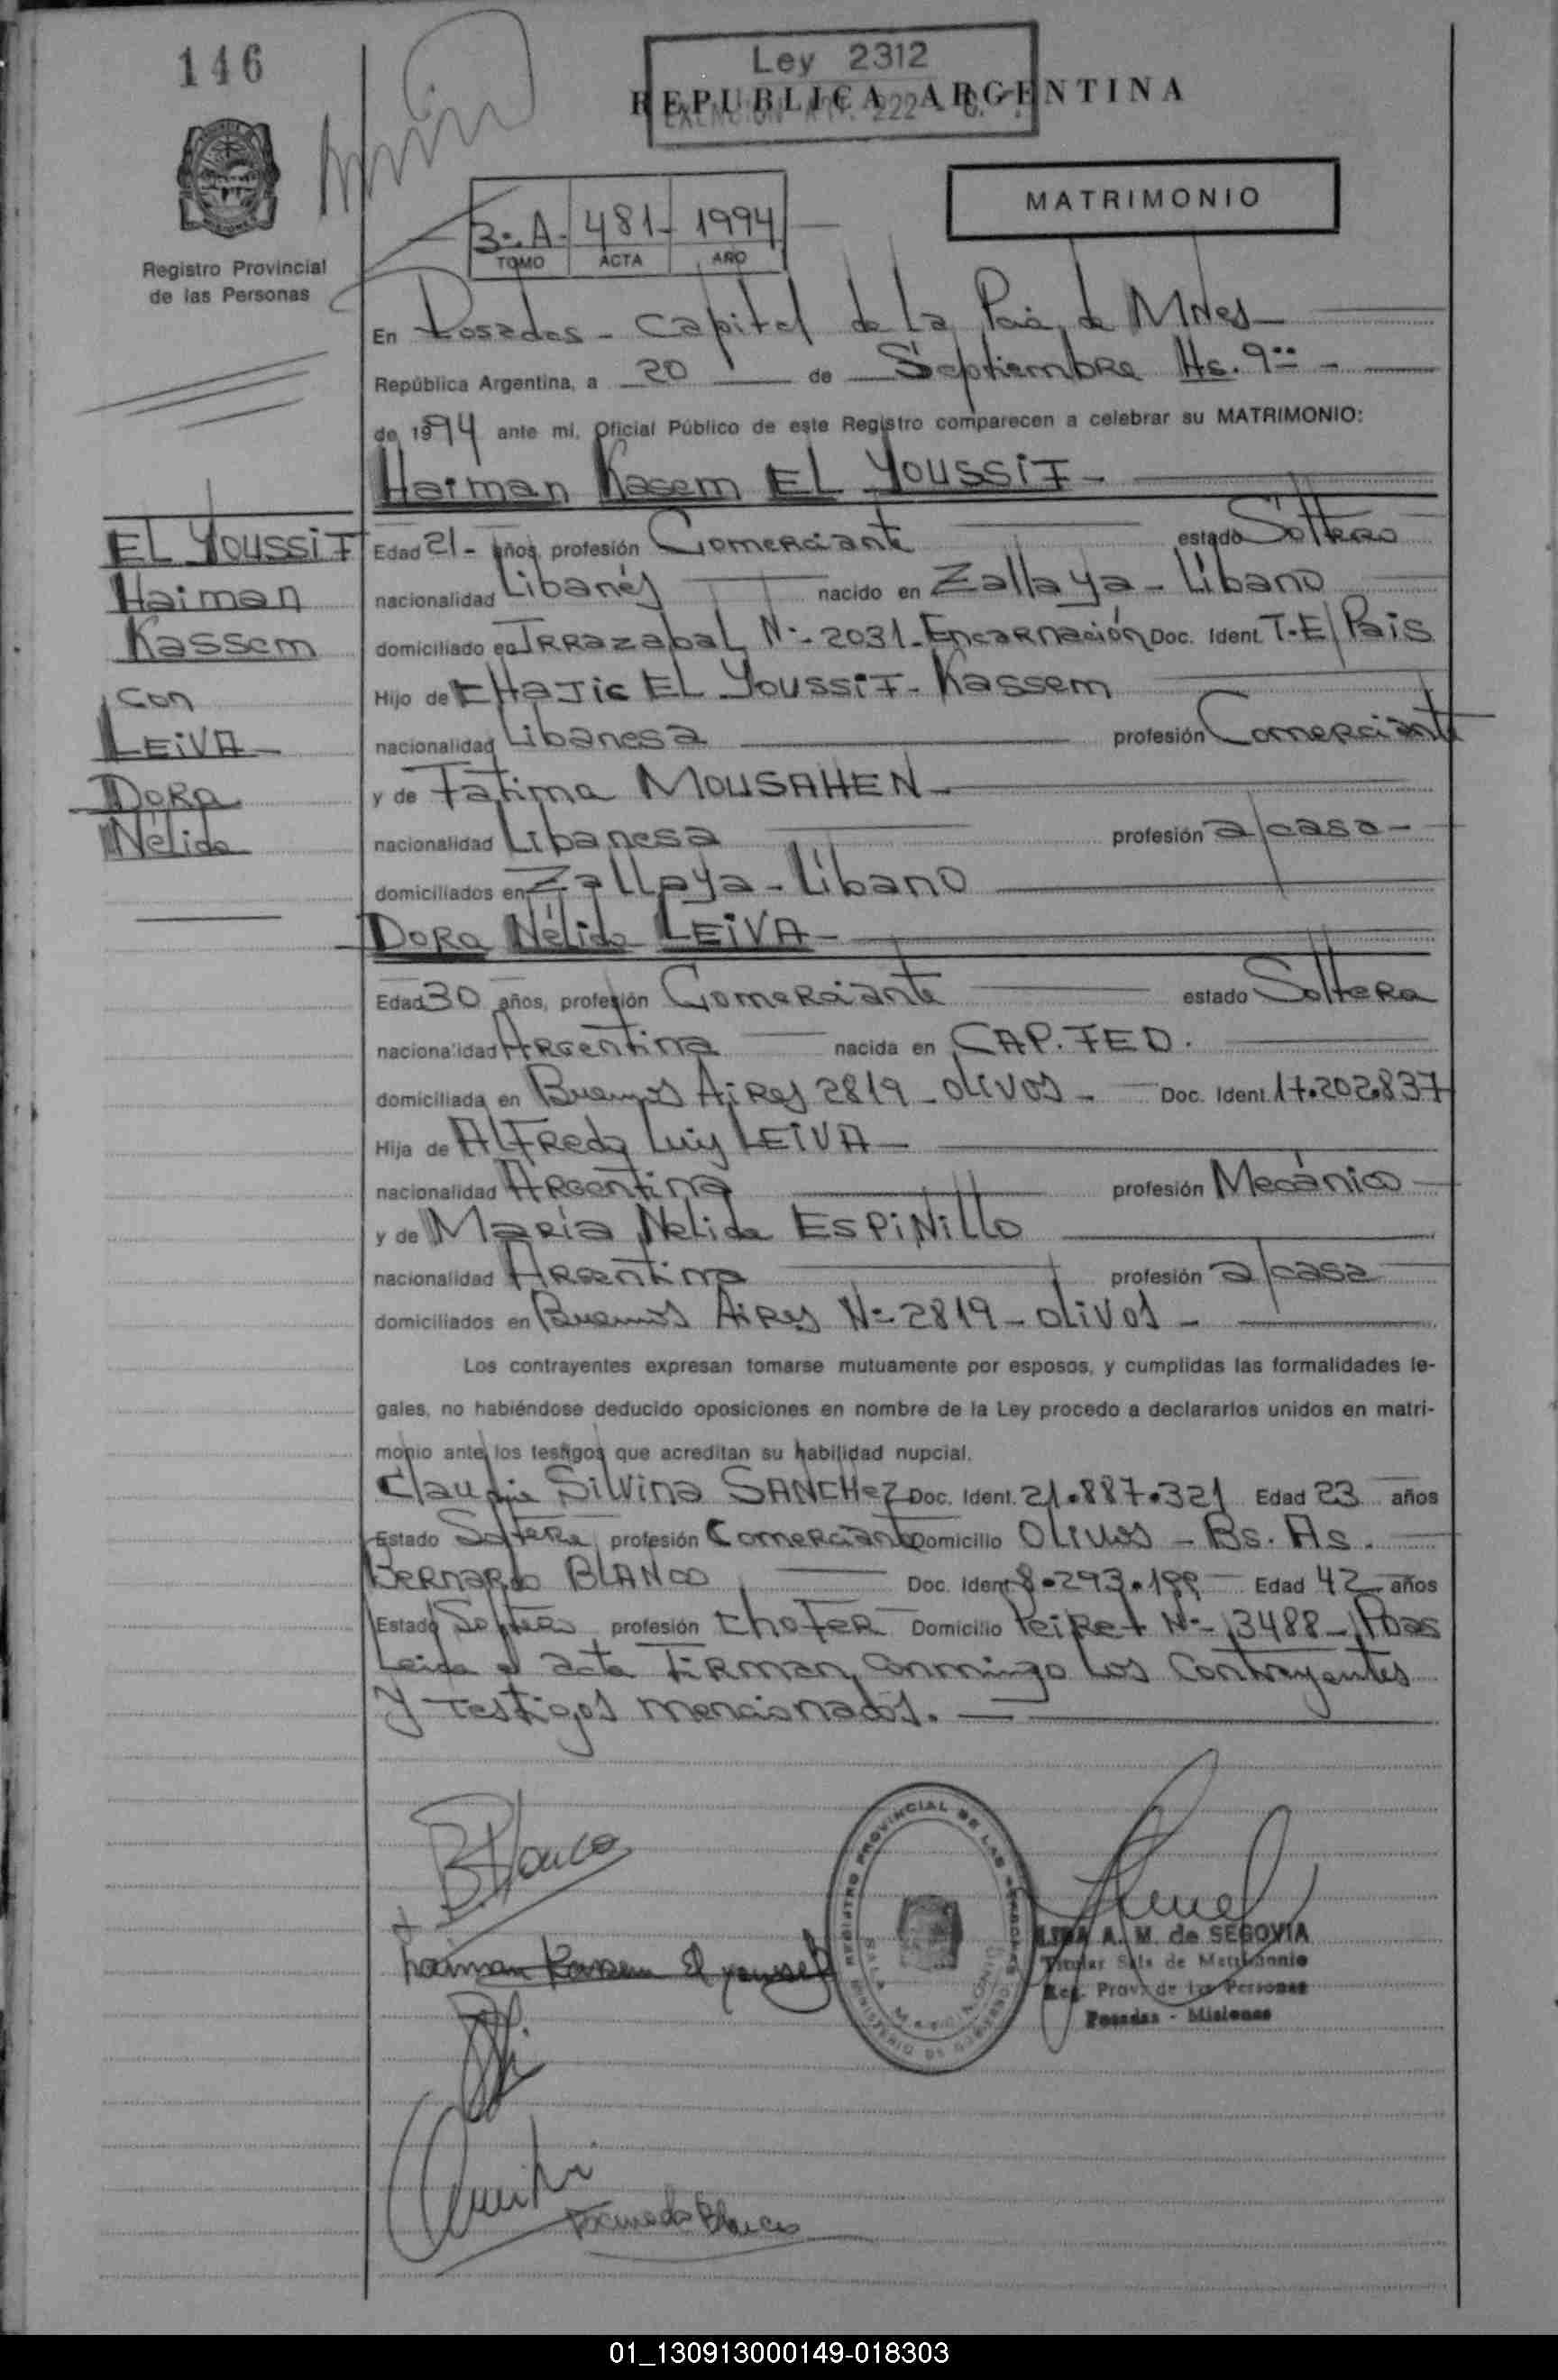 146
Ley 2312
REPUBLICA ARGENTINA
MATRIMONIO
3º.A. 481 1994
TOMO ACTA AÑO
Registro Provincial
de las Personas
En Posadas - Capital de La Pcia, de MNes
República Argentina, a 20 de Septiembre Hs. 9
de 1994 ante mi, Oficial Público de este Registro comparecen a celebrar su MATRIMONIO:
Haiman Kasem EL YOUSSIF
EL YOUSSIF
Haiman
Kassem
con
LEIVA
Dora
Nélida
Edad 21 años, profesión Comerciante estado Soltero
nacionalidad Libanés nacido en Zallaya - Líbano
domiciliado en IRRazabaL Nº 2031 - Encarnación Doc. Ident. T.E/Pais
Hijo de EHaJie EL YoussiF - Kassem
nacionalidad Libanesa profesión Comerciante
y de Fátima MOUSAHEN
nacionalidad Libanesa profesión a/casa
domiciliados en Zallaya - Líbano
Dora Nélida LEIVA
Edad 30 años, profesión Comerciante estado Soltera
nacionalidad Argentina nacida en CAP. FED.
domiciliada en Buenos Aires 2819 - Olivos - Doc. Ident. 17.202.837
Hija de Alfredo Luis LEIVA
nacionalidad Argentina profesión Mecánico
y de María Nelida ESPINILLO
nacionalidad Argentina profesión a/casa
domiciliados en Buenos Aires Nº 2819 - Olivos
Los contrayentes expresan tomarse mutuamente por esposos, y cumplidas las formalidades le-
gales, no habiéndose deducido oposiciones en nombre de la Ley procedo a declararlos unidos en matri-
monio ante los testigos que acreditan su habilidad nupcial.
Claudia Silvina SANCHEZ Doc. Ident. 21.887.321 Edad 23 años
Estado Soltera profesión Comerciante Domicilio Olivos - Bs. As.
Bernardo BLANCO Doc. Ident 8.293.199 Edad 42 años
Estado Soltero profesión Chofer Domicilio Peiret Nº 3488 - Pdas
Leida el acta firman conmingo los contrayentes
y testigos mencionados.
Blanco
haiman Kassem El youssef
REGISTRO PROVINCIAL DE LAS PERSONAS
MINISTERIO DE GOBIERNO
SALA MATRIMONIO
A. M. de SEGOVIA
Titular Sala de Matrimonio
Reg. Prov. de las Personas
Posadas - Misiones
01_130913000149-018303